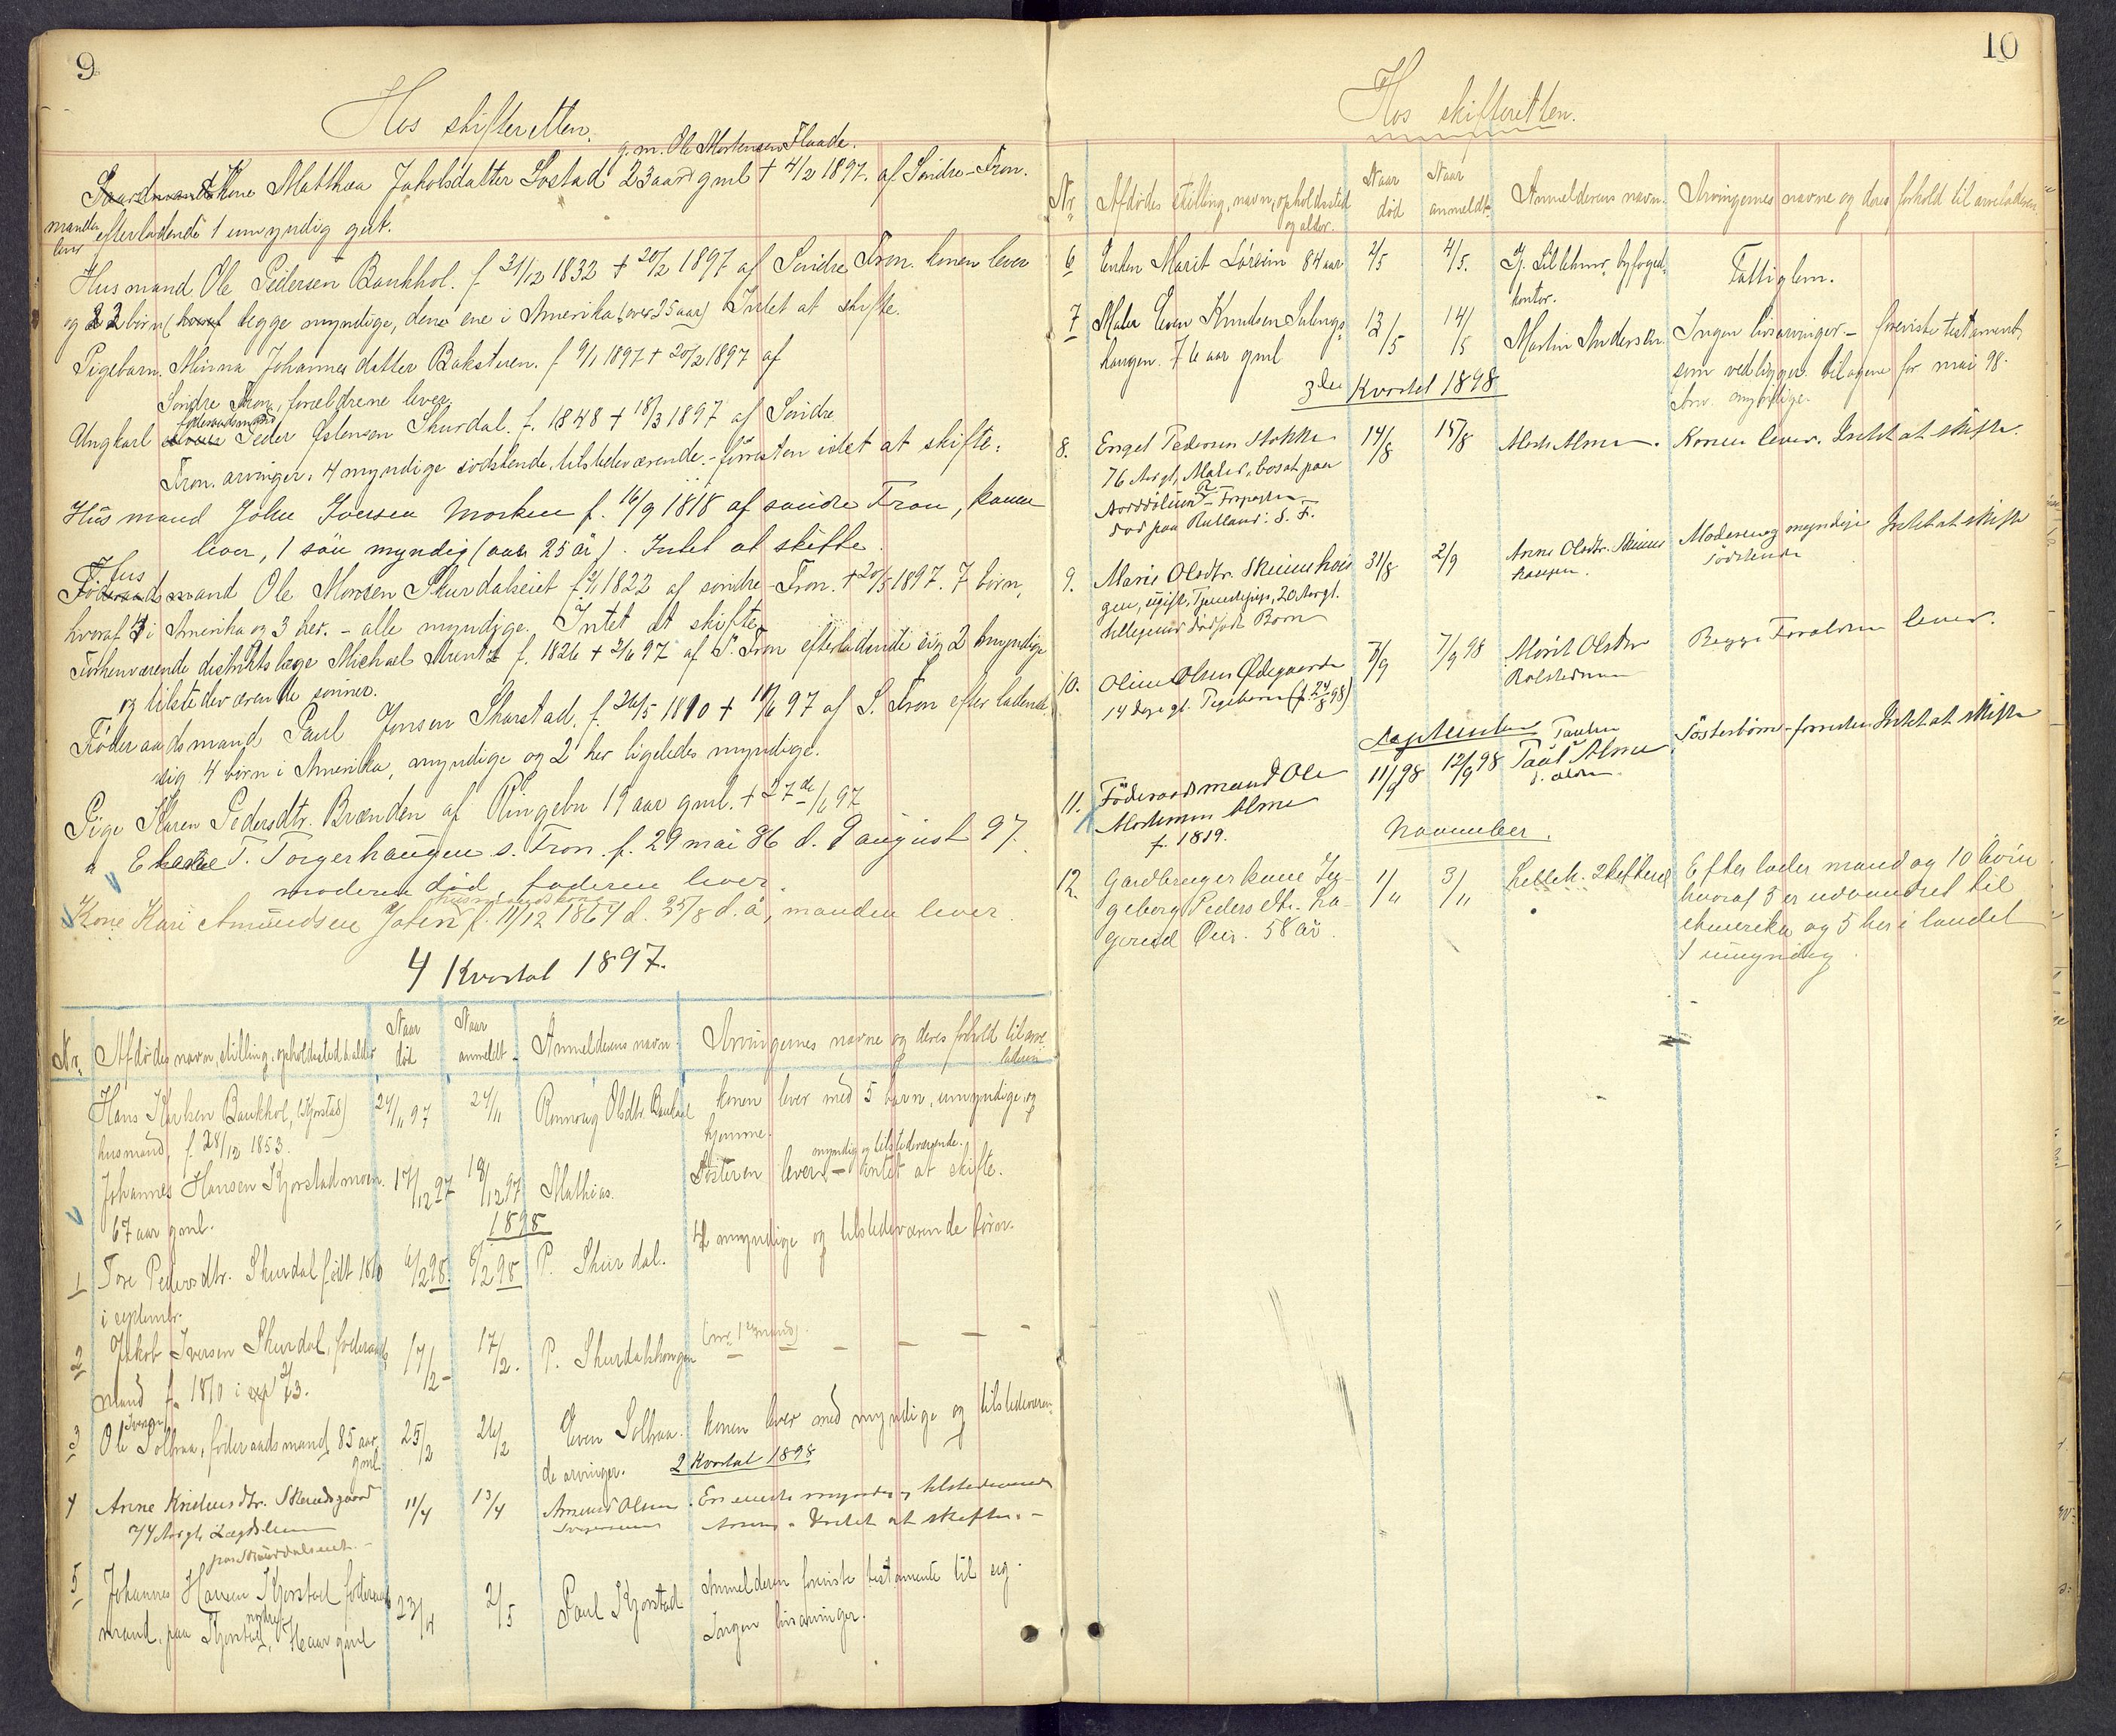 9
Hos skifteretten.
g. m. Ole Mortensen Flaade.
Gaardmands Kone Matthea Jakobsdatter Sostad 23 aar gml † 4/2 1897 af Søndre-Fron.
manden lever efterladende 1 umyndig gut.
Husmand Ole Pedersen Baukhol. f 31/12 1832 † 20/2 1897 af Søndre Fron. konen lever
og 2 børn (hvoraf begge myndige, den ene i Amerika (over 25 aar) Intet at skifte.
Pigebarn Minna Johannesdatter Baksteren. f 9/1 1897 † 20/2 1897 af
Søndre Fron, forældrene lever.
føderaadsmand
Ungkarl Peder Østensen Skurdal. f. 1848 † 18/3 1897 af Søndre
Fron. arvinger: 4 myndige sødskende, tilstedeværende.- forresten intet at skifte.
Husmand John Iversen Morken f. 16/9 1818 af søndre Fron, konen
lever, 1 sön myndig (over 25 år). Intet at skifte.
Hus
Föderaadsmand Ole Monsen Skurdalseiet f. 2/1 1822 af søndre-Fron. † 20/5 1897. 7 børn,
hvoraf 4 i Amerika og 3 her. - alle myndige. Intet at skifte.
Forhenværende distriktslæge Michael Arentz f. 1826 † 2/6 97 af S. Fron efterladende sig 2 myndige
og tilstedeværende sønner.
Føderaadsmand Paul Jonsen Skarstad. f. 26/5 1810 † 10/6 97 af S. Fron efterladende
sig 4 børn i Amerika, myndige og 2 her ligeledes myndige.
Pige Karen Pedersdtr. Brænden af Ringebu 19 aar gml. † 27de/6 97
T. Torgerhaugen s. Fron. f. 29 mai 86 d. 9 august 97.
moderen död, faderen lever.
husmandskone
Kone Kari Amundsen Joten f. 11/12 1867 d. 25/8 d. å, manden lever.
4 Kvartal 1897.
Nr. Afdødes navn, stilling, opholdssted & alder Naar død Naar anmeldt Anmelderens navn. Arvingernes navne og deres forhold til arveladeren
Hans Baukhol, (Kjorstad) 24/11 97 24/11 Rønnaug Olsdtr. Baukhol konen lever med 5 børn, umyndige, og
husmand, f. 28/12 1853. hjemme.
myndig og tilstedeværende.
Johannes Hansen Kjorstadmoen. 17/12 97 18/12 97 Mathias. Søsteren lever - intet at skifte.
67 aar gml.
1898
1 Tore Pedersdtr. Skurdal født 1810 6/2 98. 8/2 98 P. Skurdal. 4 myndige og tilstedeværende børn.
i septembr.
2 Jakob Iversen Skurdal, føderaads 17/2 - 17/2. P. Skurdalshaugen (nr. 1's mand).
mand f. 1810 i
Iversen
3 Ole Solbraa, føderaadsmand 85 aar gml 25/2 26/2 Even Solbraa. konen lever med myndige og tilstedeværen-
de arvinger.
2 Kvartal 1898
4 Anne Knudsdtr. 11/4 13/4 Amund Olsen En eneste myndig og tilstedeværende
77 Aar gl. Lægdslem Arving. Intet at skifte. -
paa Skurdalseiet. -
5 Johannes Hansen Kjorstad føderaads 23/4 2/5 Paul Kjorstad Anmelderen foreviste testamente til sig.
mand, paa Kjorstad nordre, aar gml Ingen livsarvinger.
10
Hos skifteretten.
Nr. Afdødes stilling, navn, opholdssted og alder. Naar død Naar anmeldt Anmelderens navn. Arvingernes navne og deres forhold til arveladeren
6 Enken Marit 84 aar 2/5 4/5. Gj. Lillehmr. byfoged- Fattiglem.
kontor.
7 Maler Even Knudsen 13/5 14/5 Martin Andersen. Ingen livsarvinger. - foreviste testament,
haugen. 76 aar gml som vedligger bilagene for mai 98.
Arv. myndige.
3die Kvartal 1898
8. Engel Pedersen Stokke 14/8 15/8 Konen lever. Intet at skifte.
76 Aar gl., Maler, bosat paa
død paa Rulland. S. F.
9. Marie Olsdtr. Skeiens haü- 31/8 2/9 Anne Olsdtr. Moderen og myndige Intet at skifte
gen, ugift, Tjenestepige, 20 Aar gl. haugen. södskende
tillegemed dødfødt Barn
10. Oline Olsen Ødegaarden 7/9 7/9 98 Marit Olsdtr Begge Forældre lever.
14 dage gl. Pigebarn (f. 24/8 98)
September
11. Föderaadsmand Ole 11/9 98 12/9 98 Paul Alme Søsterbörn - forresten Intet at skifte
Mortensen Alme
f. 1819.
November.
12 Gardbruger kone In- 1/11 3/11 Lilleh. Skifteret Efterlader mand og 10 börn
geborg Pedersdtr. Ha- hvoraf 5 er udvandret til
gerud Öier. 58 år. Amerika og 5 her i landet
1 umyndig.